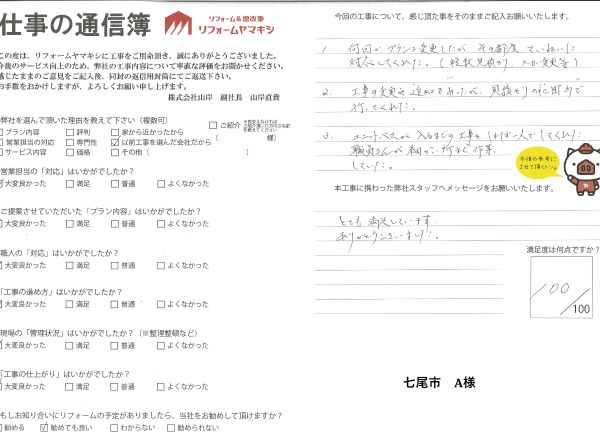 仕事の通信簿
リフォーム&増改築
リフォームヤマキシ
この度は、リフォームヤマキシに工事をご用命頂き、誠にありがとうございました。
今後のサービス向上のため、弊社の工事内容について率直な評価をお聞かせください。
感じたままのご意見をご記入後、同封の返信用封筒にてご返送下さい。
お手数をおかけしますが、よろしくお願い申し上げます。
株式会社山岸 副社長 山岸直貴
弊社を選んで頂いた理由を教えて下さい（複数可）
プラン内容 評判 家から近かったから
営業担当の対応 専門性 以前工事を選んだ会社だから
サービス内容 価格 その他（ ）
ご紹介
様）
営業担当の「対応」はいかがでしたか？
大変良かった 満足 普通 よくなかった
ご提案させていただいた「プラン内容」はいかがでしたか？
大変良かった 満足 普通 よくなかった
職人の「対応」はいかがでしたか？
大変良かった 満足 普通 よくなかった
「工事の進め方」はいかがでしたか？
大変良かった 満足 普通 よくなかった
現場の「管理状況」はいかがでしたか？（※整理整頓など）
大変良かった 満足 普通 よくなかった
「工事の仕上がり」はいかがでしたか？
大変良かった 満足 普通 よくなかった
もしお知り合いにリフォームの予定がありましたら、当社をお勧めして頂けますか？
勧める 勧めても良い わからない 勧められない
今回の工事について、感じ頂た事をそのままご記入お願いいたします。
1 何回かプランを変更したが、その都度ていねいに
対応してくれた。（複数見積り、メーカー変更等）
2. 工事の変更や追加もあったが、見積もりの範囲内で
行ってくれた。
3. ユニットバスが入るまでの工事を
職員さんが細かい所まで作業
していた。
今後の参考に
させて頂くトン。
本工事に携わった弊社スタッフへメッセージをお願いいたします。
とても満足しています。
ありがとうございました。
満足度は何点ですか？
100
/100
七尾市 A様